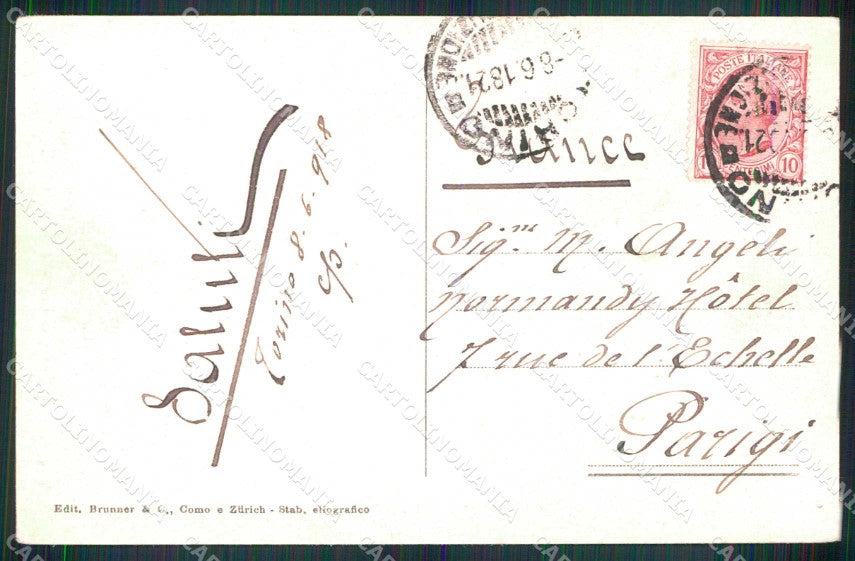 Saluti
Torino 8-6-918
France
Sig.ra M. Angeli
Normandy Hôtel
7 rue de l'Echelle
Parigi
POSTE ITALIANE
10
CENTESIMI
-8.6.18 21
Edit. Brunner & C., Como e Zürich - Stab. eliografico
CARTOLINOMANIA